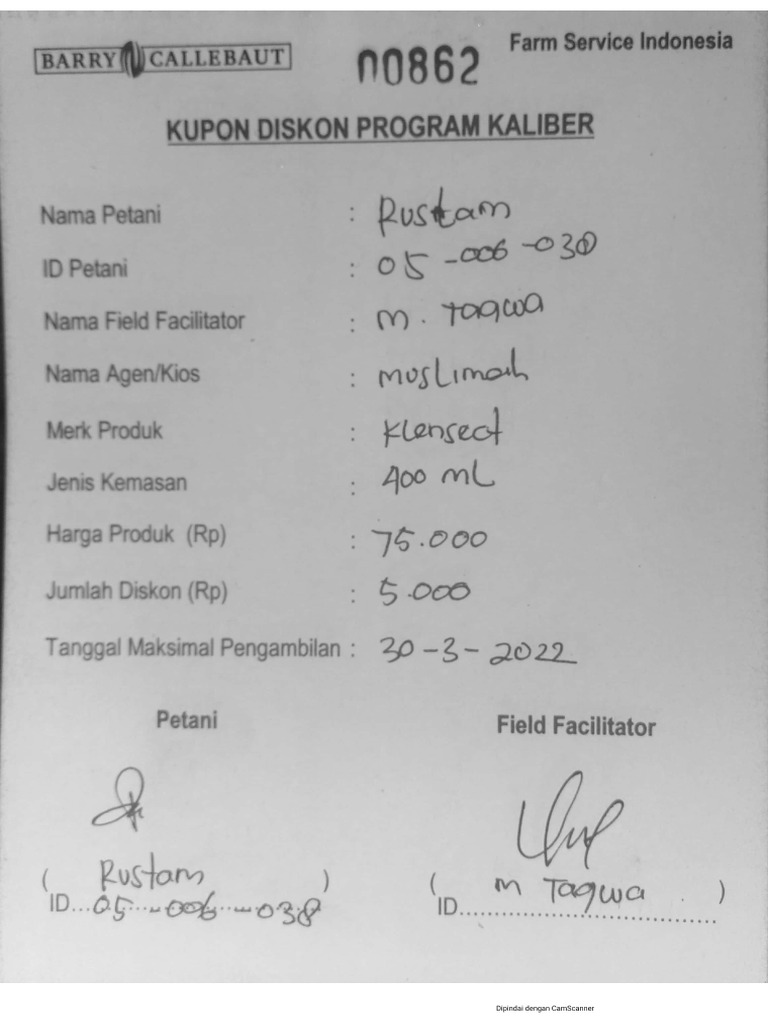 BARRY CALLEBAUT
00862
Farm Service Indonesia
KUPON DISKON PROGRAM KALIBER
Nama Petani : Rustam
ID Petani : 05-006-038
Nama Field Facilitator : M. Taqwa
Nama Agen/Kios : Muslimah
Merk Produk : Klensect
Jenis Kemasan : 400 mL
Harga Produk (Rp) : 75.000
Jumlah Diskon (Rp) : 5.000
Tanggal Maksimal Pengambilan : 30-3-2022
Petani Field Facilitator
( Rustam ) ( M Taqwa )
ID...05-006-038 ID....................................
Dipindai dengan CamScanner